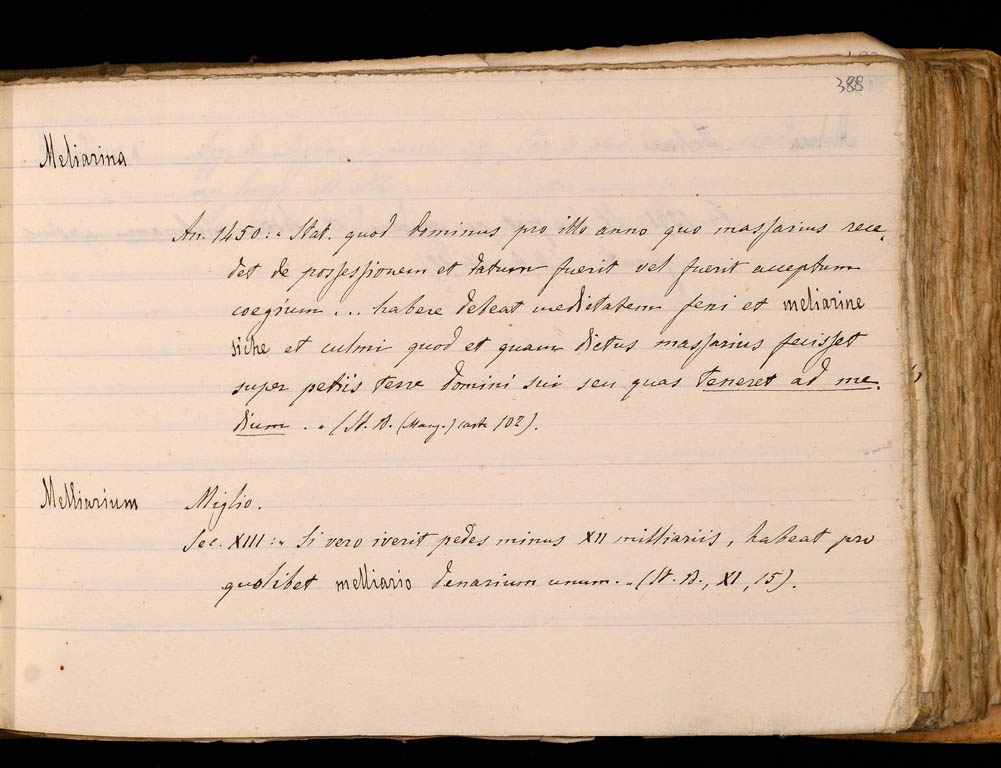 388
Meliarina
An. 1450: „ Stat. quod dominus pro illo anno quo massarius rece,
det de possessionem et datum fuerit vel fuerit acceptum
coegium ... habere debeat medietatem feni et meliarine
siche et culmi quod et quam dictus massarius fecisset
super petiis terre domini sui seu quas teneret ad me,
dium . „ (St. B. (Mang.) carte 102).
Melliarium Miglio.
Sec. XIII: „ Si vero iverit pedes minus XII milliariis, habeat pro
quolibet melliario denarium unum. „ (St. B., XI, 15).